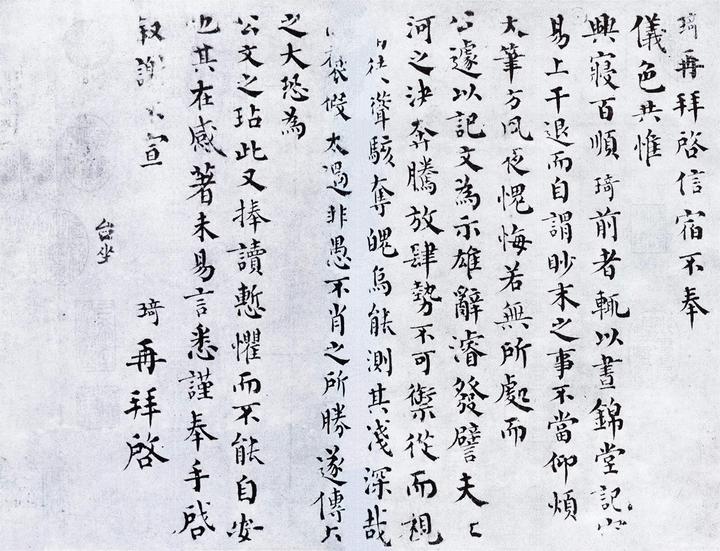 琦再拜啓信宿不奉
儀色共惟
興寢百順琦前者輒以晝錦堂記
易上干退而自謂眇末之事不當仰煩
大筆方夙夜愧悔若無所處而
公遽以記文為示雄辭濬發譬夫
河之決奔騰放肆勢不可禦從而視
徒聳駭奪魄烏能測其淺深哉
褒假太過非愚不肖之所勝遂傳
之大恐為
公文之玷此又捧讀慙懼而不能自安
也其在感著未易言悉謹奉手啓
叙謝不宣 琦再拜啓
台坐